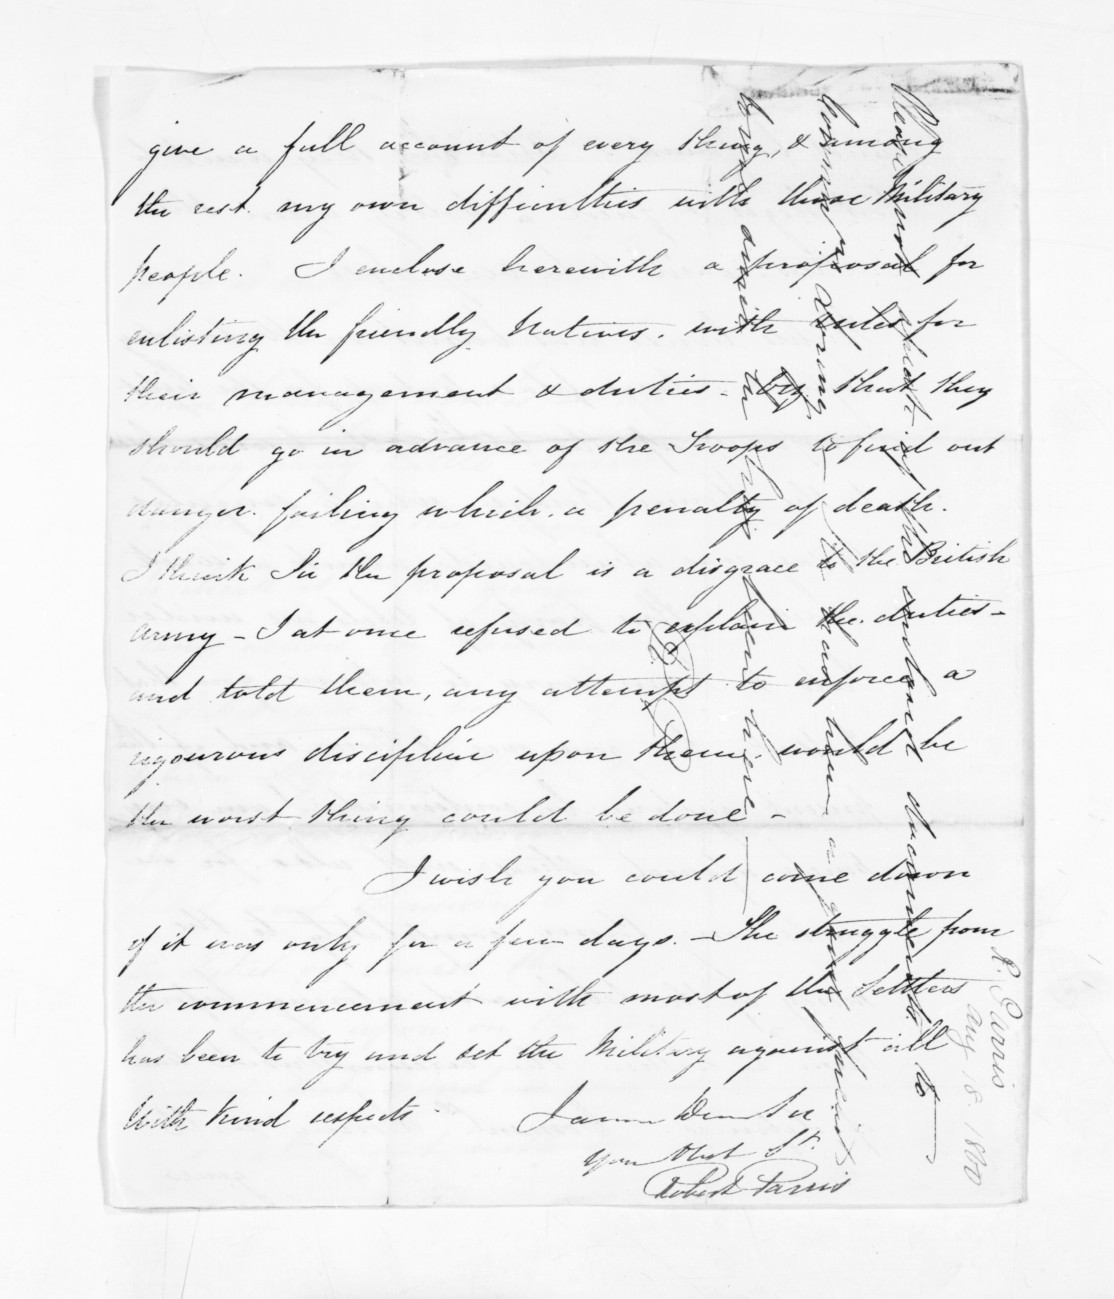 give a full account of every thing, & among
the rest. my own difficulties with these Military
people. I enclose herewith a proposal for
enlisting the friendly Natives. with rules for
their management & duties. that they
should go in advance of the Troops to find out
danger. failing which. a penalty of death.
I think Sir the proposal is a disgrace to the British
army - I at once refused to explain the duties -
and told them, any attempt to enforce a
rigourous discipline upon them, would be
the worst thing could be done -
I wish you could come down
if it was only for a few days. - The struggle from
the commencement with most of the Settlers
has been to try and set the Military against all
With kind respects I am Dear Sir
your Obdt St.
Robert Parris
Please find the enclosed
doing to the has been a great
been here
R. Parris
Aug 18. 1860